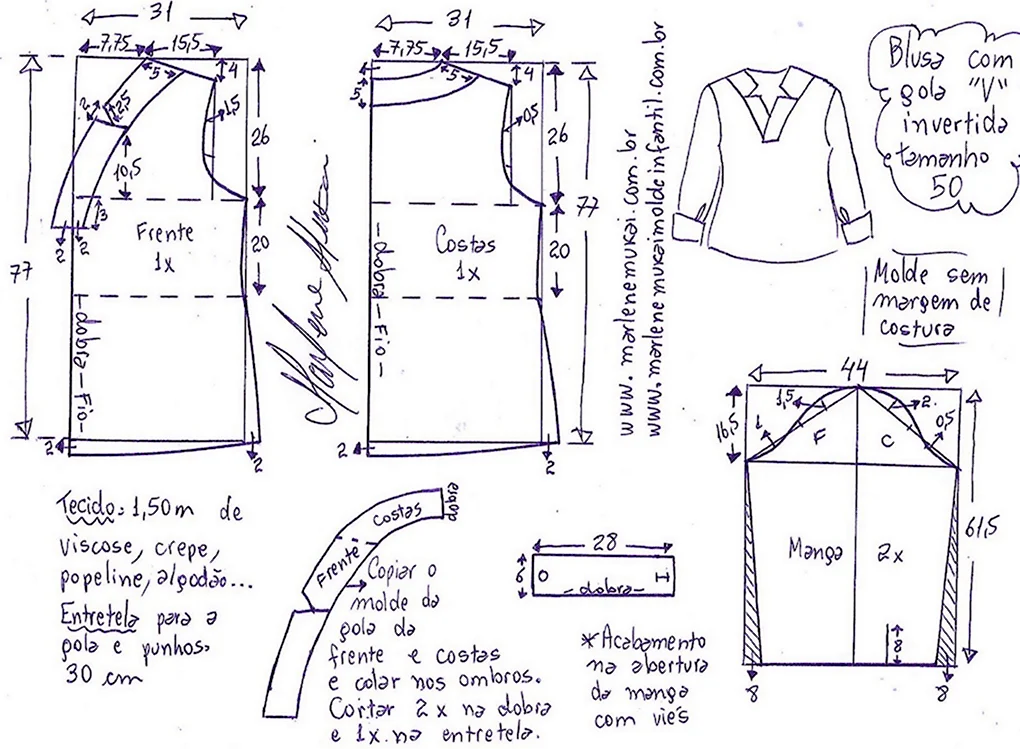 31
7,75 15,5
5
4
2
2,5
1,5
26
10,5
3
Frente
1x
2
2
20
77
dobra - Fio -
2
2
31
7,75 15,5
5
4
5
0,5
26
Costas
1x
20
77
- dobra - Fio -
2
2
Marlene Mukai
www.marlenemukai.com.br
www.marlenemukaimoldeinfantil.com.br
Blusa com
gola "V"
invertida
tamanho
50
Molde sem
margem de
costura
44
16,5
1,5
2
1
0,5
F
C
Manga 2x
61,5
8
8
8
Tecido: 1,50m de
viscose, crepe,
popeline, algodão...
Entretela para a
gola e punhos:
30 cm
Costas
dobra
Frente
Copiar o
molde da
gola da
frente e costas
e colar nos ombros.
Cortar 2x na dobra
e 1x na entretela.
28
- dobra -
*Acabamento
na abertura
da manga
com viés